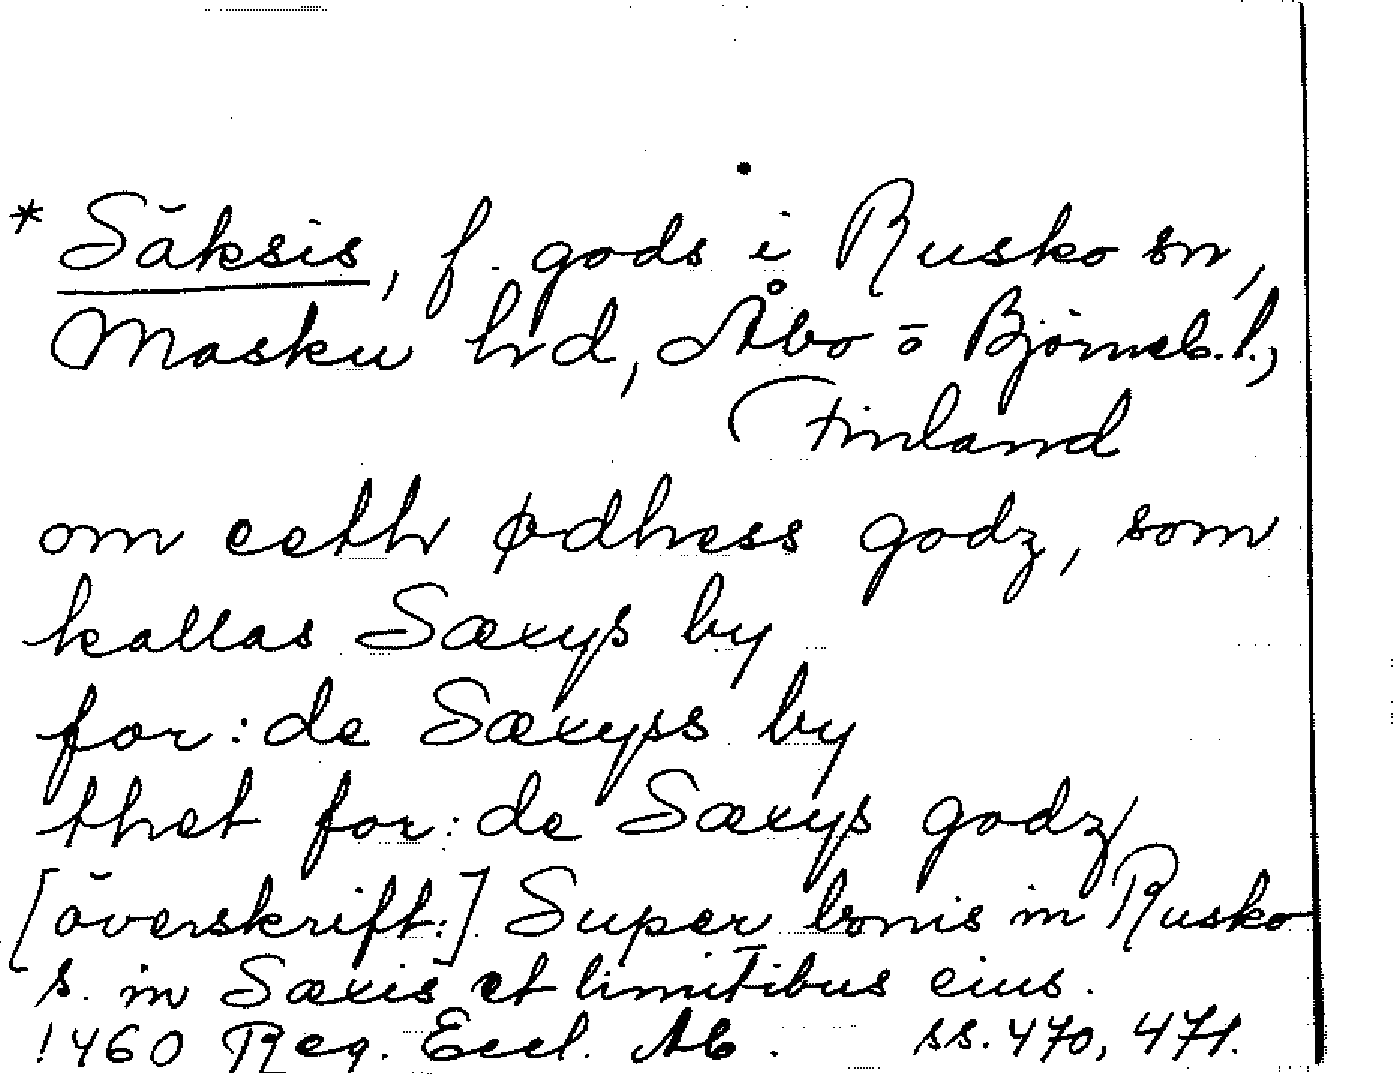 * Säksis, f. gods i Rusko sn,
Masku hd, Åbo o Björneb. l.,
Finland
om eeth ødhess godz, som
kallas Sæxys by
for:de Sæxyss by
thet for:de Sæxys godz/
[överskrift:] Super bonis in Rusko
s. in Sæxis et limitibus eius.
1460 Reg. Eccl. Ab. ss. 470, 471.